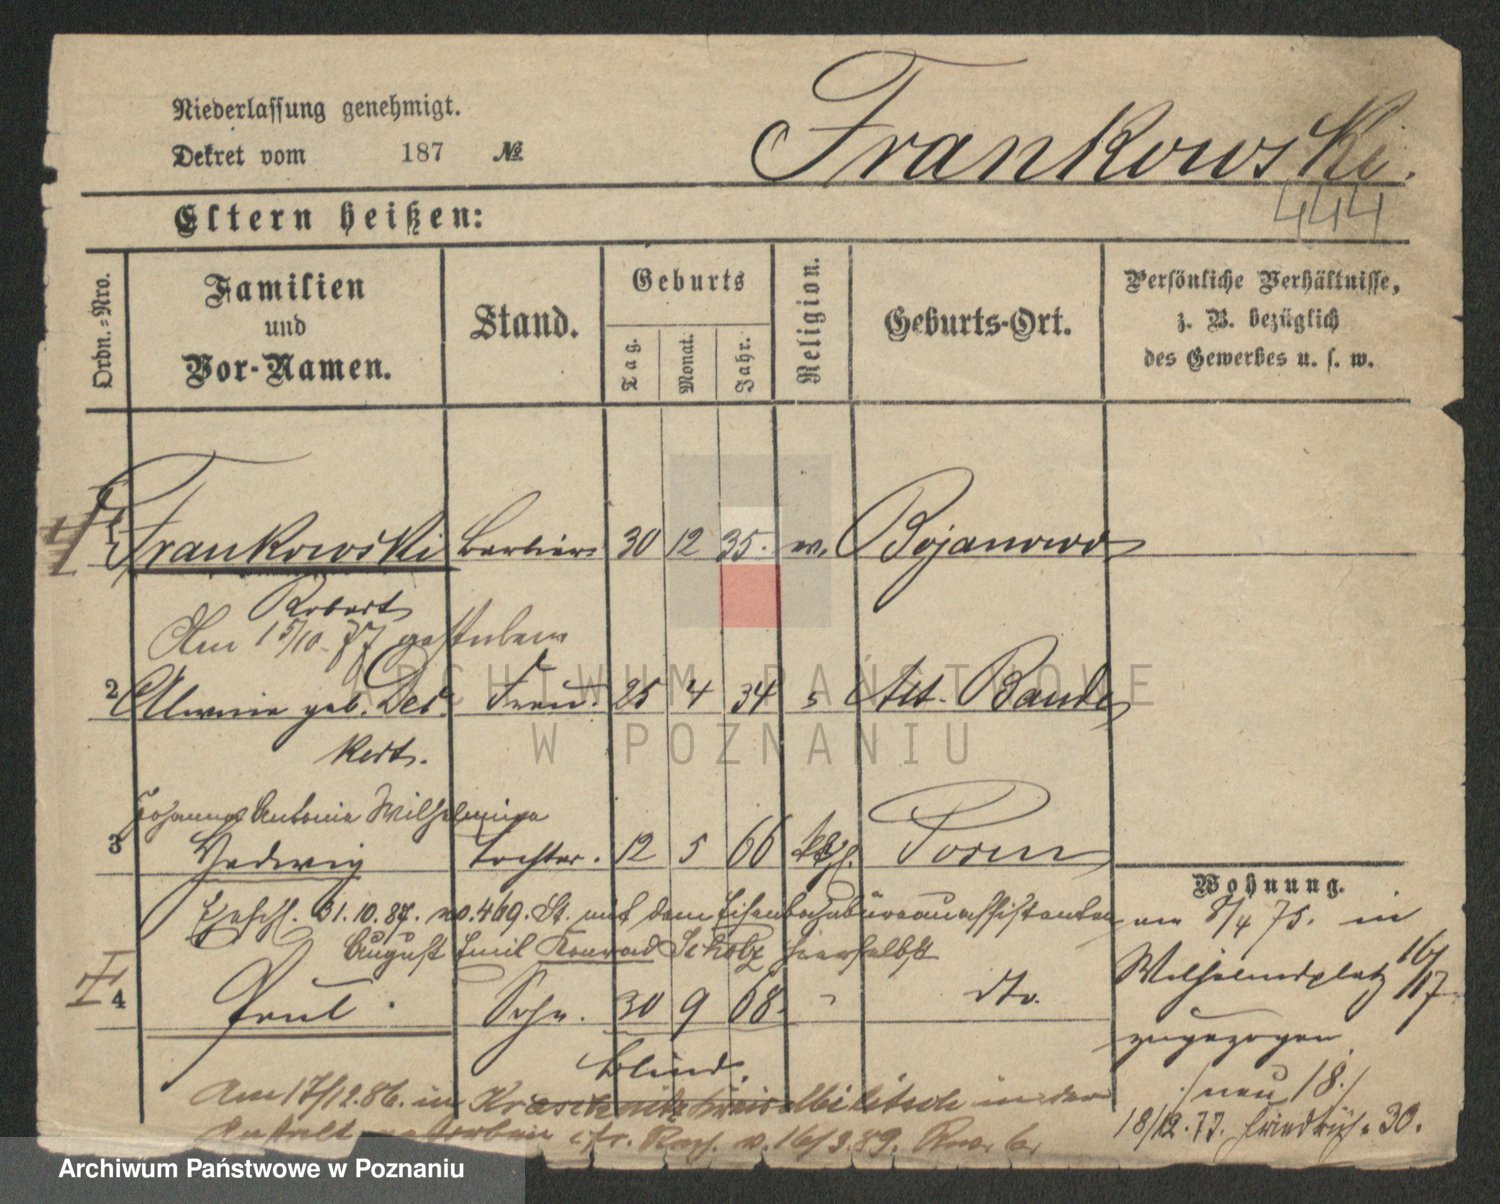 Niederlassung genehmigt.
Dekret vom 187 №
Frankowski.
444
Eltern heißen:
Ordn.=Nro.
Familien
und
Vor-Namen.
Stand.
Geburts
Tag.
Monat.
Jahr.
Religion.
Geburts-Ort.
Persönliche Verhältnisse,
z. B. bezüglich
des Gewerbes u. s. w.
1 Frankowski Barbier 30 12 35. ev. Bojanowo
Robert
Am 15/10. 77 gestorben
2 Alwine geb. Dec- Frau. 25 4 34 Alt. Baude
kert.
Johanna Antonie Wilhelmina
3 Hedwig Tochter. 12 5 66 kath. Posen
Wohnung.
Ehesch. 31.10.87. no. 469. St. mit dem Eisenbahnbüreauassistenten
August Emil Konrad Scholz hierselbst
am 8/4 75. in
Wilhelmsplatz 16/17
zugezogen
4 Paul. Sohn. 30 9 68. " dto.
blind.
./. neu 18 ./.
18/12. 77. Friedrichs. 30.
Am 17/12.86. in Kraschnitz Kreis Militsch in der
Anstalt gestorben cfr. v. 16/3.89. No. 6.
ARCHIWUM PAŃSTWOWE
W POZNANIU
Archiwum Państwowe w Poznaniu